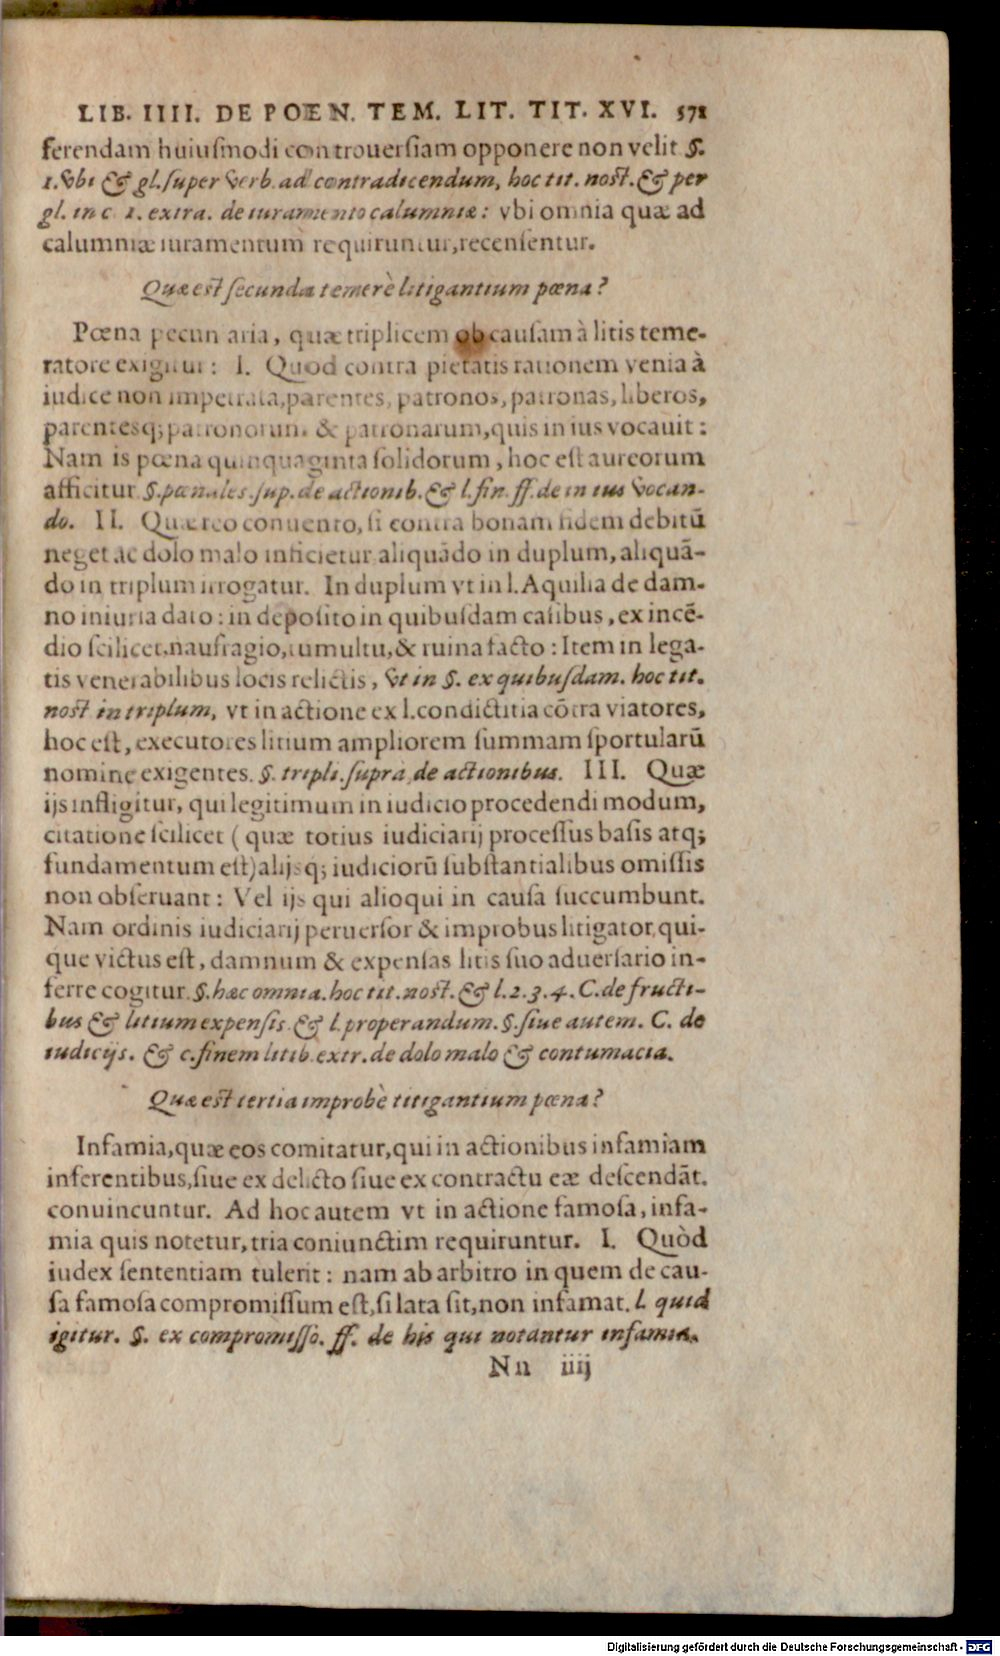 LIB. IIII. DE POEN. TEM. LIT. TIT. XVI. 571
ferendam huiusmodi controuersiam opponere non velit §.
1. vbi & gl. super verb. ad contradicendum, hoc tit. nost. & per
gl. in c 1. extra. de iuramento calumniæ: vbi omnia quæ ad
calumniæ iuramentum requiruntur, recensentur.
Quæ est secunda temerè litigantium pœna?
Pœna pecuniaria, quæ triplicem ob causam à litis teme-
ratore exigitur: I. Quod contra pietatis rationem venia à
iudice non impetrata, parentes, patronos, patronas, liberos,
parentesq; patronorum & patronarum, quis in ius vocauit:
Nam is pœna quinquaginta solidorum, hoc est aureorum
afficitur §. pœnales. sup. de actionib. & l. fin. ff. de in ius vocan-
do. II. Quæ reo conuento, si contra bonam fidem debitū
neget ac dolo malo inficietur aliquādo in duplum, aliquā-
do in triplum irrogatur. In duplum vt in l. Aquilia de dam-
no iniuria dato: in deposito in quibusdam casibus, ex incē-
dio scilicet, naufragio, tumultu, & ruina facto: Item in lega-
tis venerabilibus locis relictis, vt in §. ex quibusdam. hoc tit.
nost in triplum, vt in actione ex l. condictitia cōtra viatores,
hoc est, executores litium ampliorem summam sportularū
nomine exigentes. §. tripli. supra de actionibus. III. Quæ
ijs infligitur, qui legitimum in iudicio procedendi modum,
citatione scilicet (quæ totius iudiciarij processus basis atq;
fundamentum est) alijsq; iudiciorū substantialibus omissis
non obseruant: Vel ijs qui alioqui in causa succumbunt.
Nam ordinis iudiciarij peruersor & improbus litigator, qui-
que victus est, damnum & expensas litis suo aduersario in-
ferre cogitur. §. hæc omnia. hoc tit. nost. & l. 2. 3. 4. C. de fructi-
bus & litium expensis & l. properandum. §. siue autem. C. de
iudicijs. & c. finem litib. extr. de dolo malo & contumacia.
Quæ est tertia improbè litigantium pœna?
Infamia, quæ eos comitatur, qui in actionibus infamiam
inferentibus, siue ex delicto siue ex contractu eæ descendāt.
conuincuntur. Ad hoc autem vt in actione famosa, infa-
mia quis notetur, tria coniunctim requiruntur. I. Quòd
iudex sententiam tulerit: nam ab arbitro in quem de cau-
sa famosa compromissum est, si lata sit, non infamat. l. quid
igitur. §. ex compromisso. ff. de his qui notantur infamia.
Nn iiij
Digitalisierung gefördert durch die Deutsche Forschungsgemeinschaft - DFG